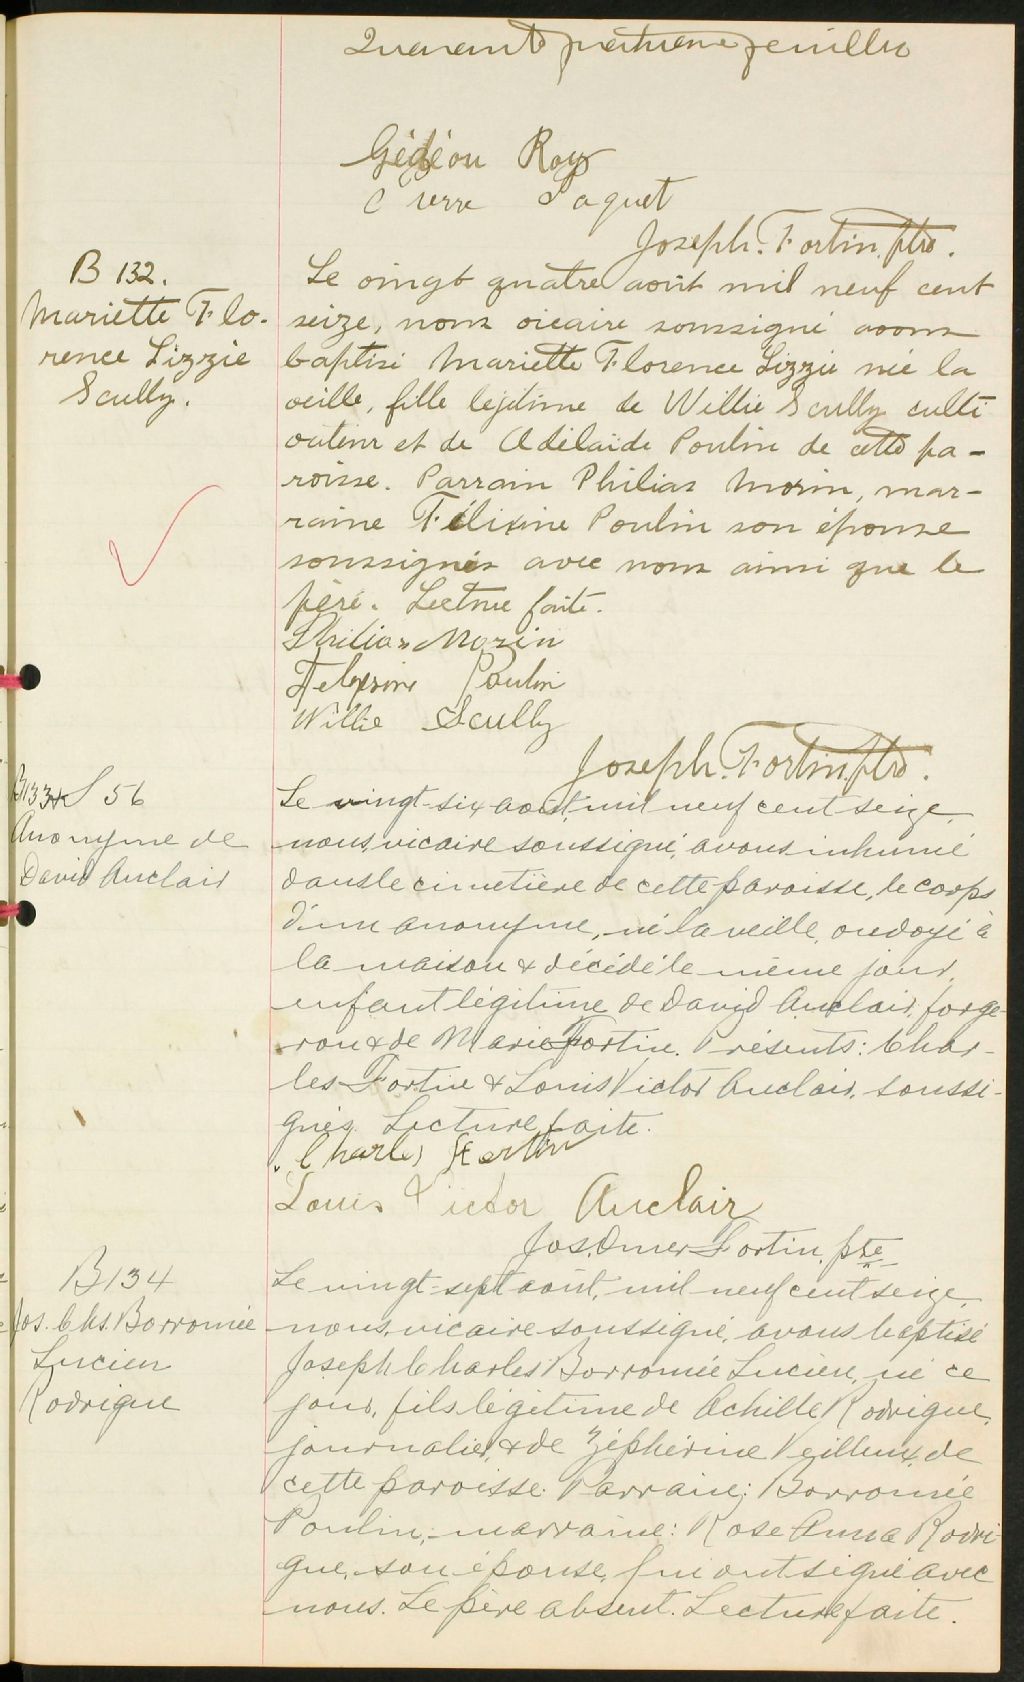 Quarante quatrième feuillet
Gédéon Roy
Pierre Paquet
Joseph. Fortin. ptre.
B 132.
Mariette Flo-
rence Lizzie
Scully.
Le vingt quatre août mil neuf cent
seize, nous vicaire soussigné avons
baptisé Mariette Florence Lizzie née la
veille, fille légitime de Willie Scully culti
vateur et de Adélaïde Poulin de cette pa-
roisse. Parrain Philias Morin, mar-
raine Félixine Poulin son épouse
soussignés avec nous ainsi que le
père. Lecture faite.
Philias Morin
Felixine Poulin
Willie Scully
Joseph. Fortin. ptre.
B133 & S 56
Anonyme de
David Auclair
Le vingt-six août, mil neuf cent seize,
nous, vicaire soussigné, avons inhumé
dans le cimetière de cette paroisse, le corps
d'un anonyme, né la veille, ondoyé à
la maison & décédé le même jour,
enfant légitime de David Auclair, forge-
ron & de Marie Fortin. Présents: Char-
les Fortin & Louis Victor Auclair, soussi-
gnés. Lecture faite.
Charles Fortin
Louis Victor Auclair
Jos. Omer Fortin, ptre
B 134
Jos. Chs. Borromée
Lucien
Rodrigue
Le vingt-sept août, mil neuf cent seize,
nous, vicaire soussigné, avons baptisé
Joseph Charles Borromée Lucien, né ce
jour, fils légitime de Achille Rodrigue,
journalier, & de Zéphérine Veilleux, de
cette paroisse. Parrain: Borromée
Poulin; marraine: Rose Anna Rodri-
gue, son épouse, qui ont signé avec
nous. Le père absent. Lecture faite.